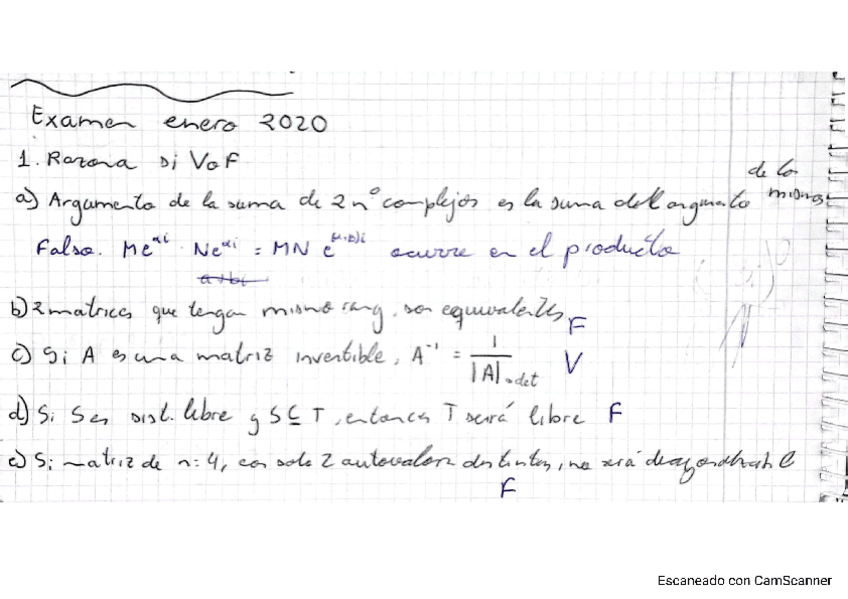 Examen enero 2020
1. Razona si V o F
a) Argumento de la suma de 2 nº complejos es la suma del argumento de los mismos
Falso. Me^αi · Ne^αi = MN e ocurre en el producto
a+bi
b) 2 matrices que tengan mismo rang, son equivalentes F
c) Si A es una matriz invertible, A^-1 = 1/|A| → det V
d) Si S es sist. libre y S ⊆ T, entonces T será libre F
e) Si matriz de n=4, con solo 2 autovalores distintos, no será diagonalizable
F
Escaneado con CamScanner